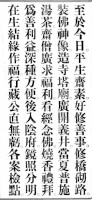 至於今日平生齋素好修善事修橋砌路
裝佛神像造寺塔廟廣開義井當夏普施
湯茶齋僧廣求福利看經念佛燒香禮拜
為善利益深種方便後入陰府鏡照分明
在生結緣作福行行戒公直無虧各案檢點